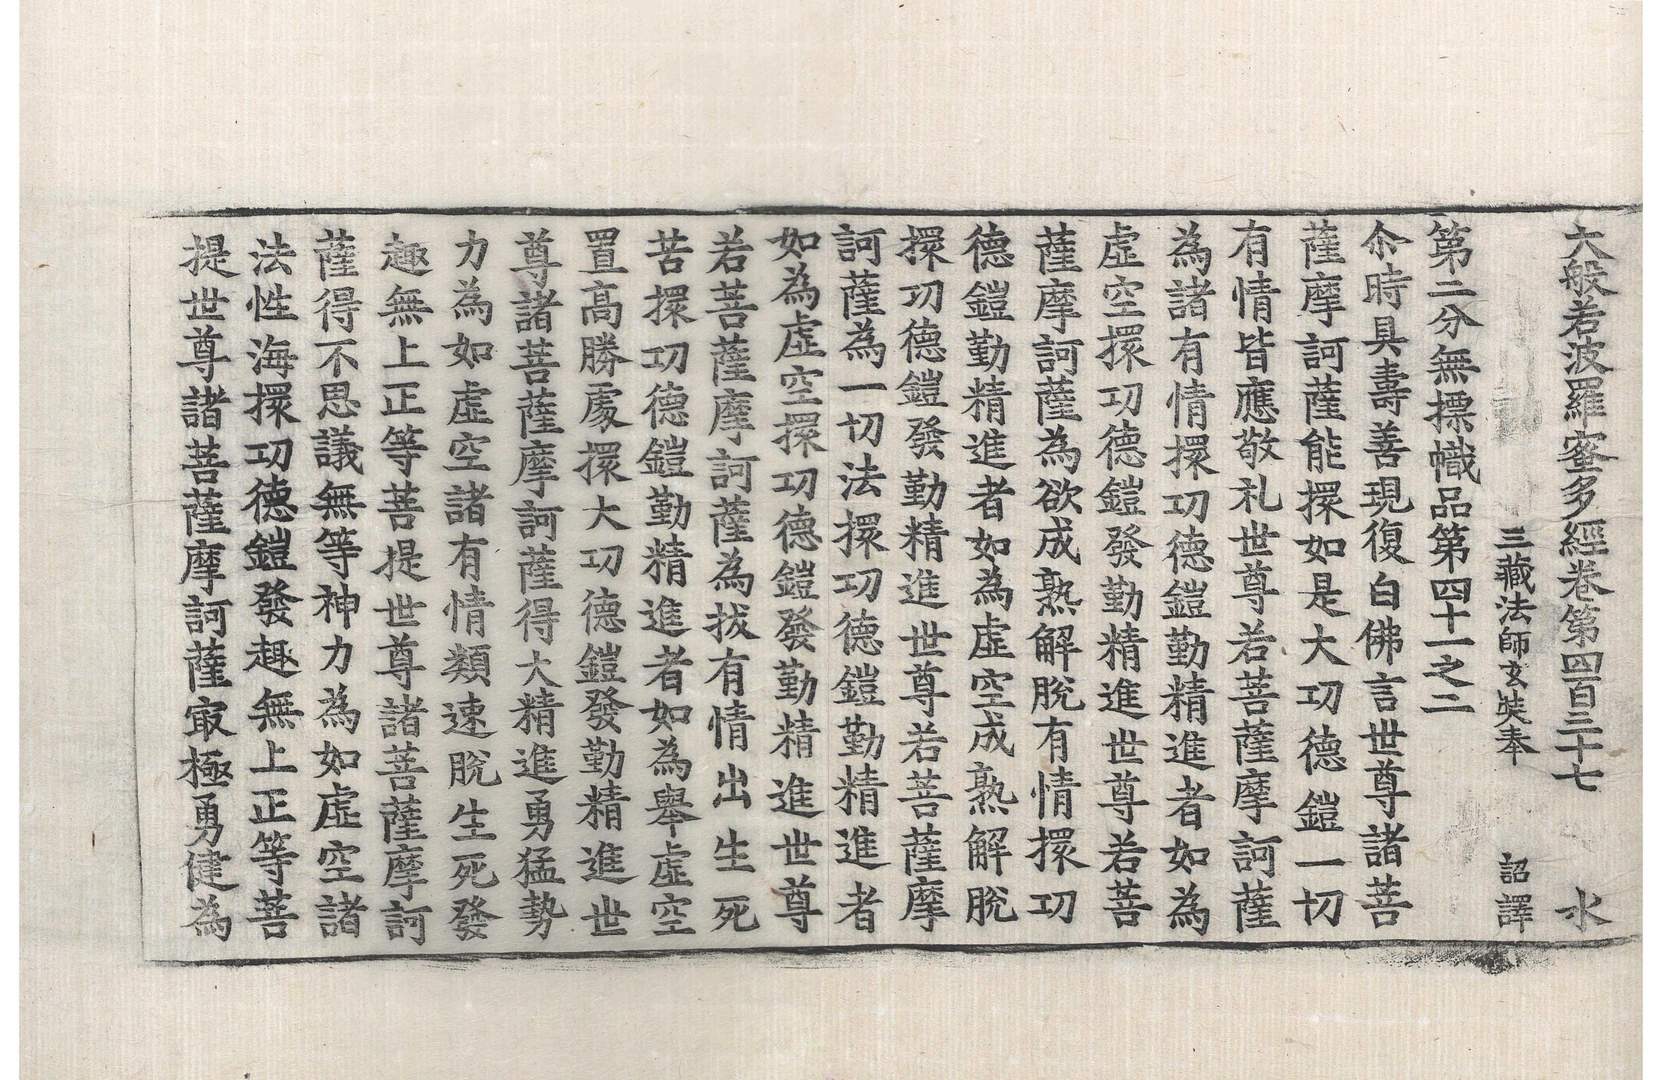 大般若波羅蜜多經卷第四百三十七 水
三藏法師玄奘奉 詔譯
第二分無摽幟品第四十一之二
尒時具壽善現復白佛言世尊諸菩
薩摩訶薩能擐如是大功德鎧一切
有情皆應敬礼世尊若菩薩摩訶薩
為諸有情擐功德鎧勤精進者如為
虛空擐功德鎧發勤精進世尊若菩
薩摩訶薩為欲成熟解脫有情擐功
德鎧勤精進者如為虛空成熟解脫
擐功德鎧發勤精進世尊若菩薩摩
訶薩為一切法擐功德鎧勤精進者
如為虛空擐功德鎧發勤精進世尊
若菩薩摩訶薩為拔有情出生死
苦擐功德鎧勤精進者如為舉虛空
置高勝處擐大功德鎧發勤精進世
尊諸菩薩摩訶薩得大精進勇猛勢
力為如虛空諸有情類速脫生死發
趣無上正等菩提世尊諸菩薩摩訶
薩得不思議無等神力為如虛空諸
法性海擐功德鎧發趣無上正等菩
提世尊諸菩薩摩訶薩㝡極勇健為